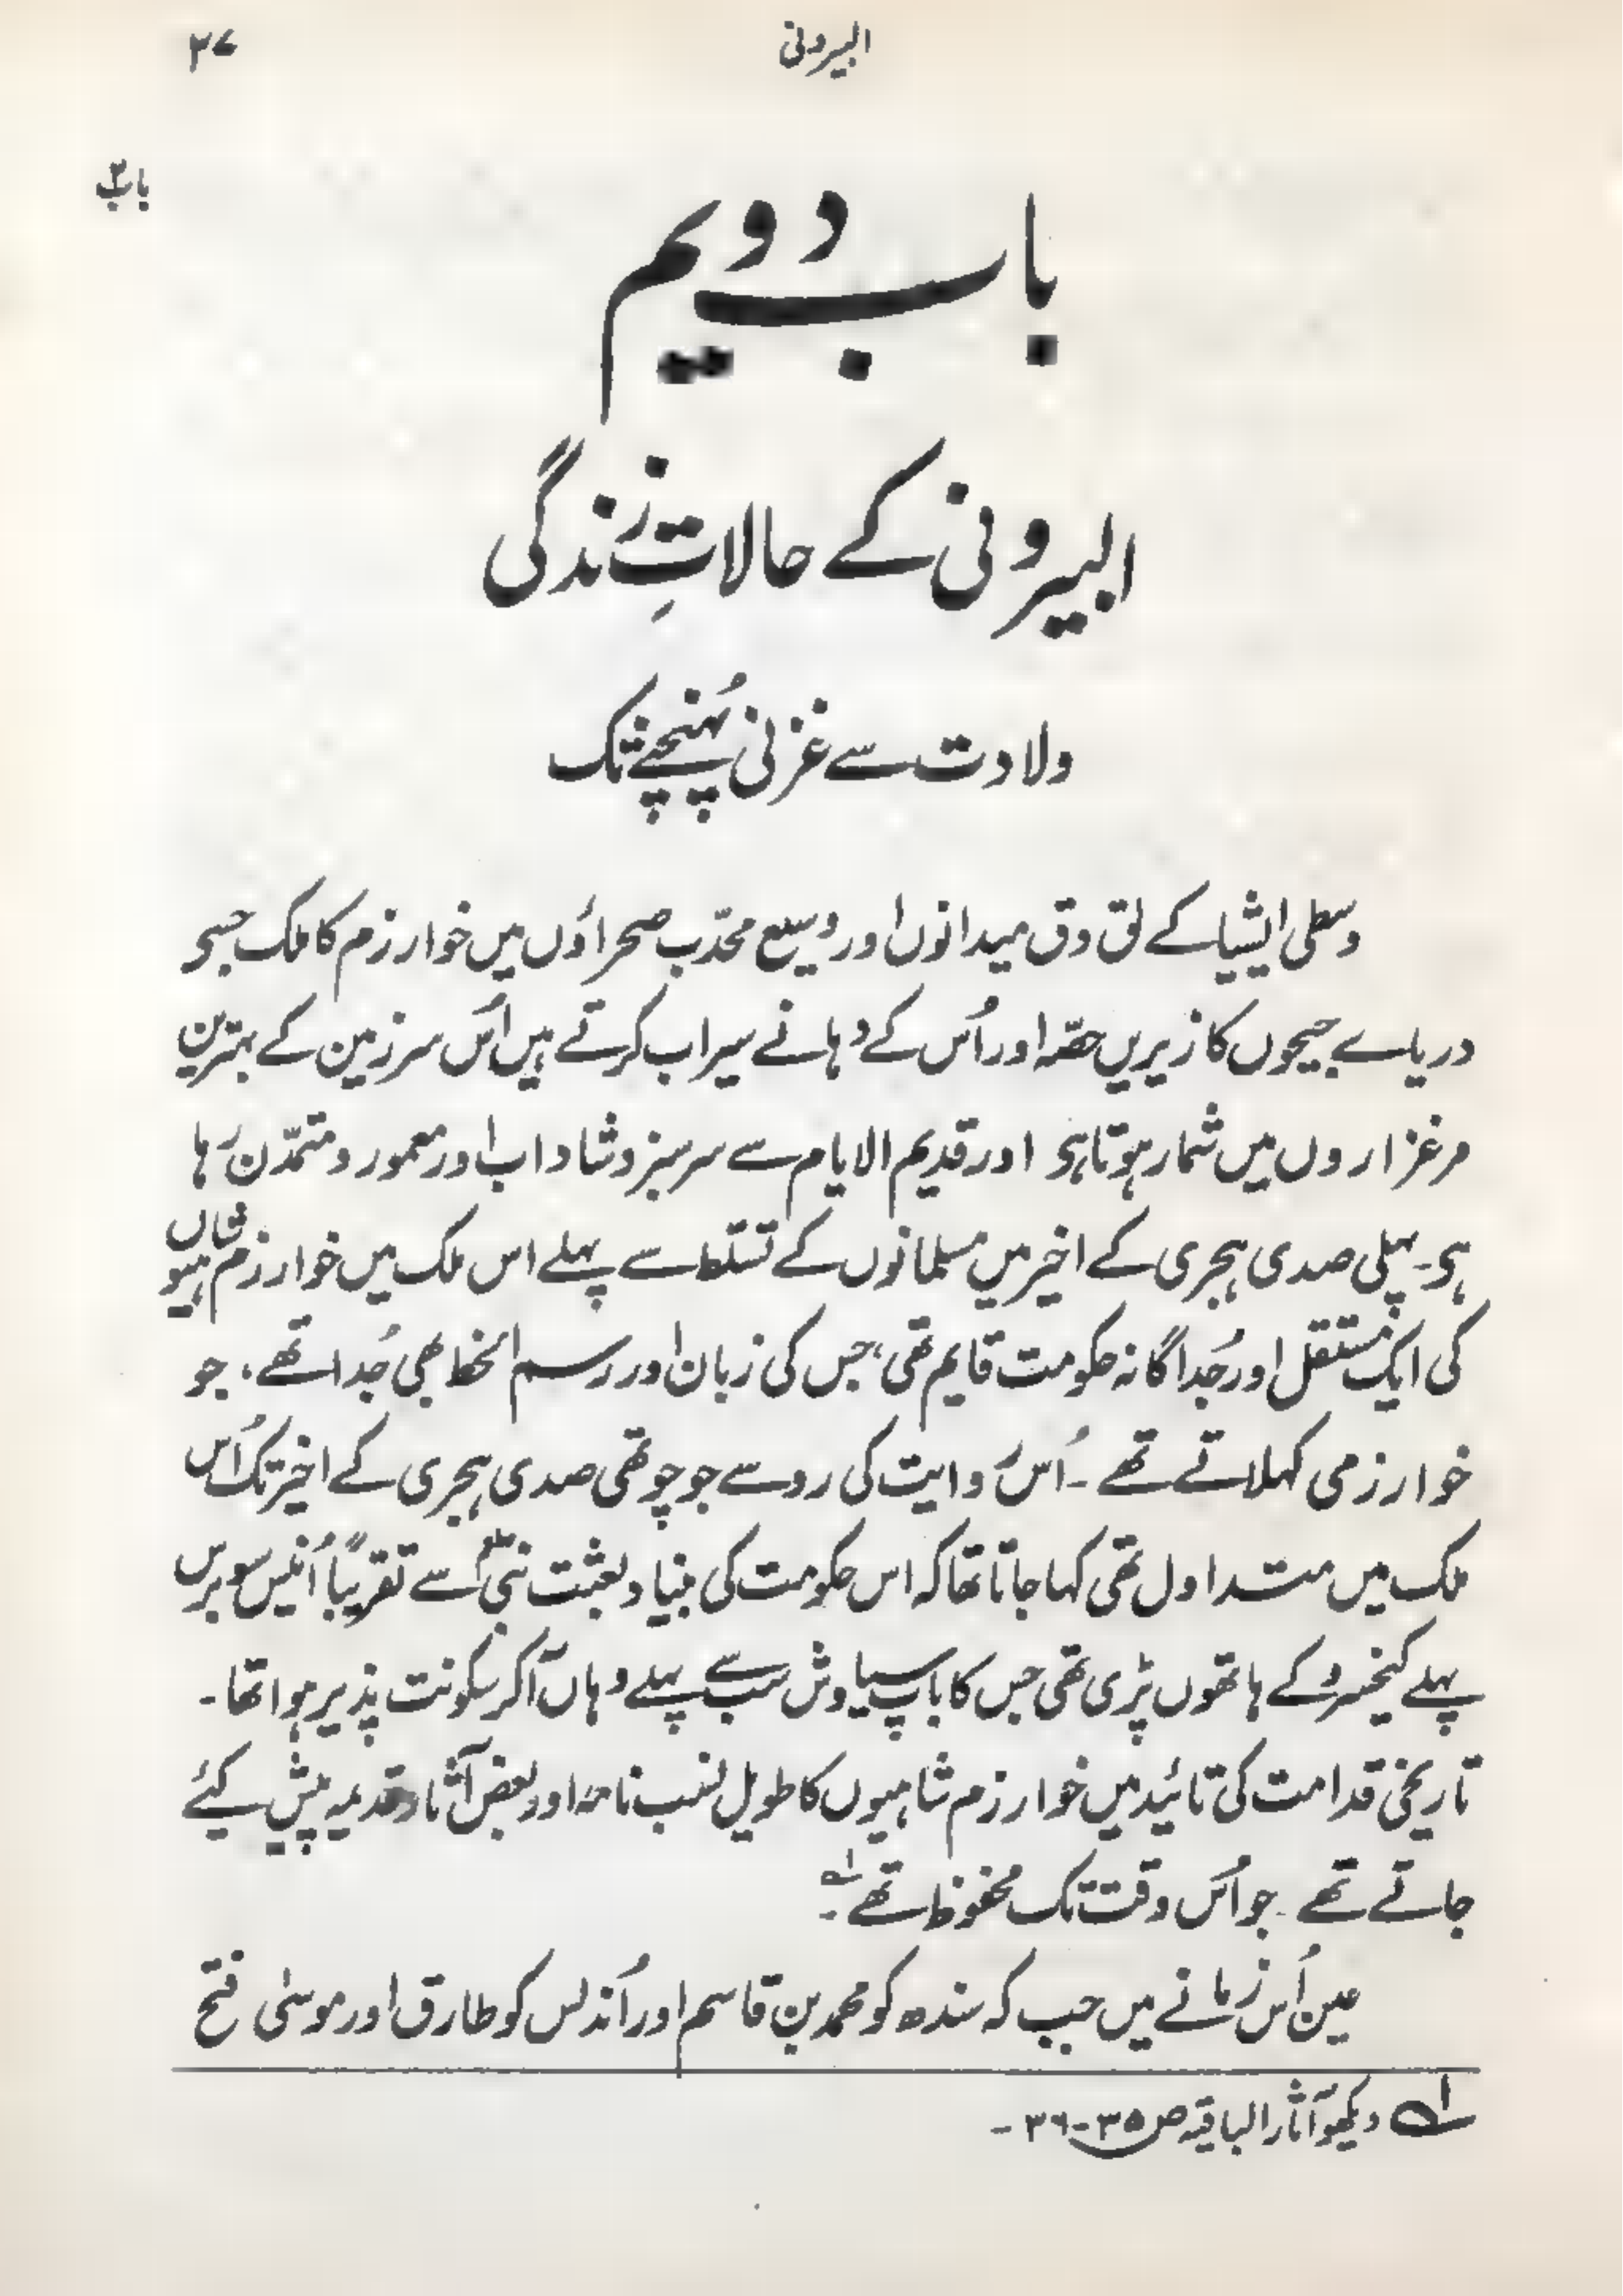 البیرونی ۳۷
باب۲
باب دویم
البیرونی کے حالاتِ زندگی
ولادت سے غزنی پہُنچنے تک
وسطی ایشیا کے لق ودق میدانوں اور وسیع محدّب صحراؤں میں خوارزم کا ملک جسے
دریاے جیحوں کا زیریں حصّہ اور اُس کے دہانے سیراب کرتے ہیں اُس سرزمین کے بہترین
مرغزاروں میں شمار ہوتا ہی اور قدیم الایام سے سرسبز و شاداب اور معمور و متمدّن رہا
ہی۔ پہلی صدی ہجری کے اخیر میں مسلمانوں کے تسلّط سے پہلے اس ملک میں خوارزم شاہیوں
کی ایک مستقل اور جُداگانہ حکومت قایم تھی، جس کی زبان اور رسم الخط بھی جُدا تھے، جو
خوارزمی کہلاتے تھے ۔ اُس روایت کی رو سے جو چوتھی صدی ہجری کے اخیر تک اُس
ملک میں متداول تھی کہا جاتا تھا کہ اس حکومت کی بنیاد بعثت نبیؐ سے تقریباً اُنیس سو برس
پہلے کیخسرو کے ہاتھوں پڑی تھی جس کا باپ سیاوش سب سے پہلے وہاں آکر سکونت پذیر ہوا تھا۔
تاریخی قدامت کی تائید میں خوارزم شاہیوں کا طویل نسب نامہ اور بعض آثار قدیمہ پیش کیئے
جاتے تھے جو اُس وقت تک محفوظ تھے۔ ۱؎
عین اُس زمانے میں جب کہ سندھ کو محمد بن قاسم اور اُندلس کو طارق اور موسیٰ فتح
۱؎ دیکھو آثار الباقیہ ص ۳۵-۳۶۔